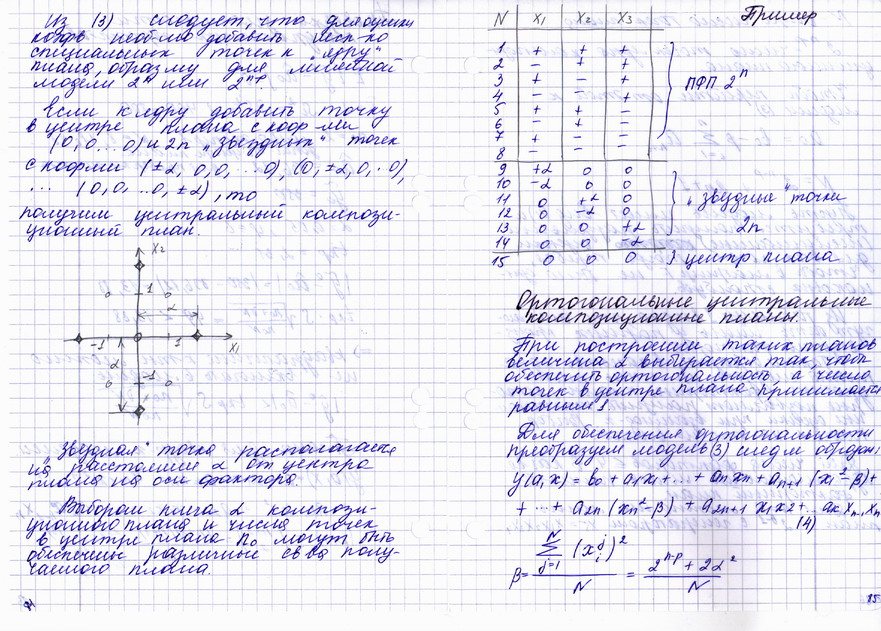 Из (3) следует, что для оценки
коэфф. необ-мо добавить неск-ко
специальных точек к "ядру"
плана, образму для линейной
модели 2ⁿ или 2ⁿ⁻ᵖ.
Если к ядру добавить точку
в центре плана с коор-ми
(0, 0...0) и 2n "звездных" точек
с коорми (±α, 0, 0, ... 0), (0, ±α, 0, ·0),
... (0, 0, ..0, ±α), то
получим центральный компози-
ционный план.
X₂
1
α
-1
1
X₁
α
-1
"Звездная" точка располагается
на расстоянии α от центра
плана на оси фактора.
Выбором плеча α компози-
ционного плана и числа точек
в центре плана n₀ могут быть
обеспечены различные св-ва полу-
чаемого плана.
N X₁ X₂ X₃ Пример
1 + + +
2 - + +
3 + - +
4 - - +
5 + + -
6 - + -
7 + - -
8 - - -
ПФП 2ⁿ
9 +α 0 0
10 -α 0 0
11 0 +α 0
12 0 -α 0
13 0 0 +α
14 0 0 -α
"звездные" точки
2n
15 0 0 0 } центр плана
Ортогональные центральные
композиционные планы.
При построении таких планов
величина α выбирается так чтобы
обеспечить ортогональность, а число
точек в центре плана принимается
равным 1.
Для обеспечения ортогональности
преобразуем модель (3) следм образом:
y(a,x) = b₀ + a₁x₁ + ... + aₙxₙ + aₙ₊₁ (x₁² - β) +
+ ... + a₂ₙ (xₙ² - β) + a₂ₙ₊₁ x₁x₂ + ... aₖ xₙ₋₁ xₙ
(4)
β = Σ_{j=1}^{N} (xᵢʲ)² / N = (2ⁿ⁻ᵖ + 2α²) / N
15